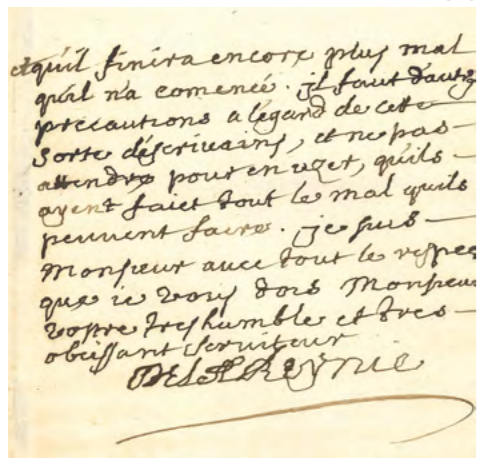 et qu'il finira encore plus mal
qu'il n'a comencé. jl faut d'autres
precautions a l'égard de cette
sorte d'escriuains, et ne pas
attendre pour en vzer, qu'ils
ayent faict tout le mal quils
peuuent faire. je suis
Monsieur auec tout le respec
que ie vous dois Monsieur
vostre treshumble et tres
obeissant seruiteur
DE LA REYNIE